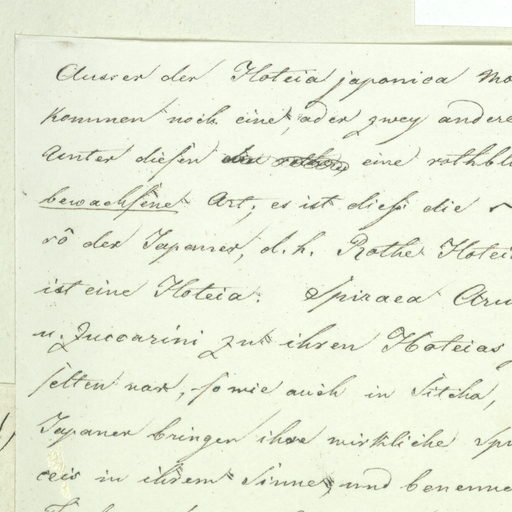 Ausser der Hoteia japonica Mo
kommen noch eine, oder zwey andere
unter diesen eine rothbl
bewachsene Art, es ist dies die
rô der Japaner, d. h. Rothe Hotei
ist eine Hoteia. Spiraea Aru
u. Zuccarini zu ihren Hoteias
selten war, sowie auch in Sitcha,
Japaner bringen ihre wirkliche Spi
ceis in ihrem Sinne, und benenne